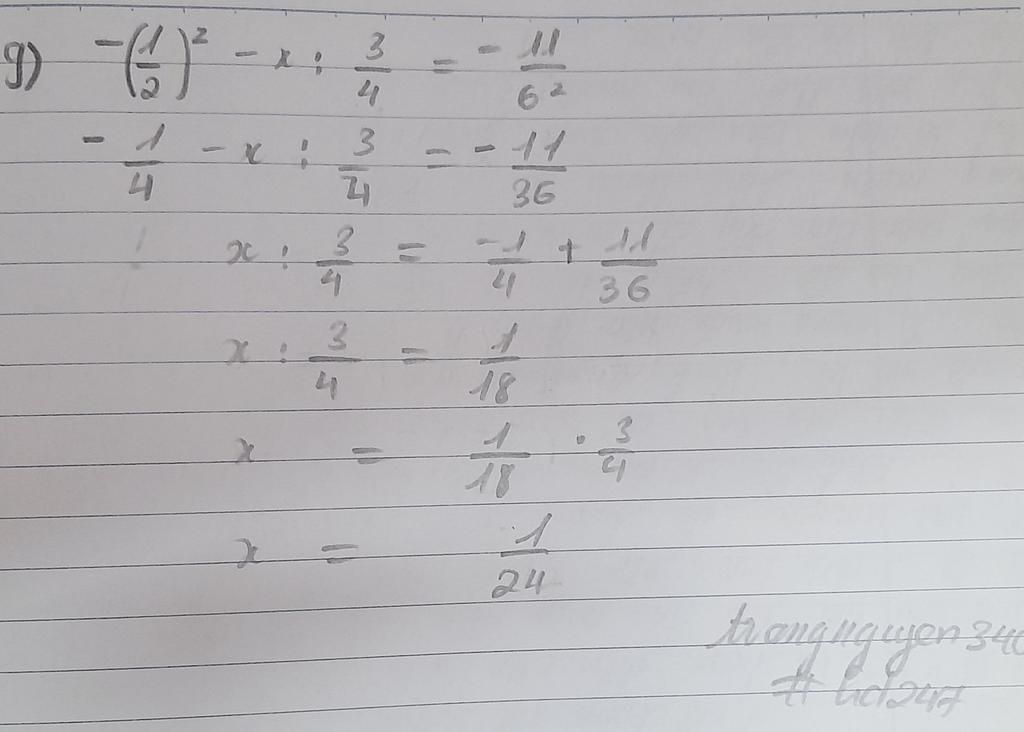 g) -(1/2)² - x : 3/4 = - 11/6²
- 1/4 - x : 3/4 = - 11/36
x : 3/4 = -1/4 + 11/36
x : 3/4 = 1/18
x = 1/18 . 3/4
x = 1/24
trangnguyen340
# hd247